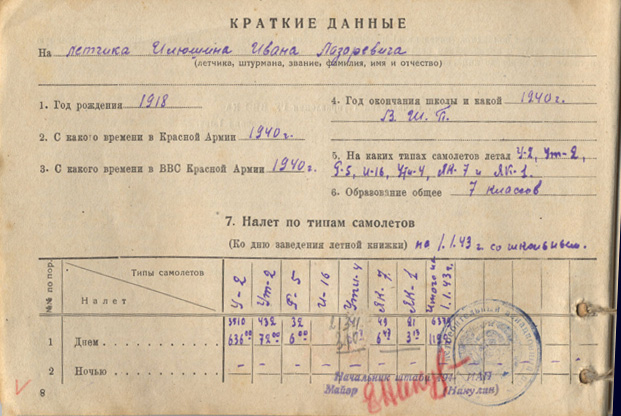 КРАТКИЕ ДАННЫЕ
На летчика Илюшина Ивана Лазаревича
(летчика, штурмана, звание, фамилия, имя и отчество)
1. Год рождения 1918
2. С какого времени в Красной Армии 1940г.
3. С какого времени в ВВС Красной Армии 1940г.
4. Год окончания школы и какой 1940г.
В. Ш. П.
5. На каких типах самолетов летал У-2, Ут-2,
Р-5, И-16, Ути-4, Як-7 и Як-1.
6. Образование общее 7 классов
7. Налет по типам самолетов
(Ко дню заведения летной книжки) на 1.1.43г. со
№№ по пор.
Типы самолетов
Налет
У-2 Ут-2 Р-5 И-16 Ути-4 Як-7 Як-1 Итого на 1.1.43г.
1 Днем
3910 432 32 341 49 21
636⁰⁰ 72⁰⁰ 6⁰⁰ 6⁴⁷ 3¹³
2 Ночью - - - - - - - -
Начальник штаба ИАП
Майор (Никулин)
8